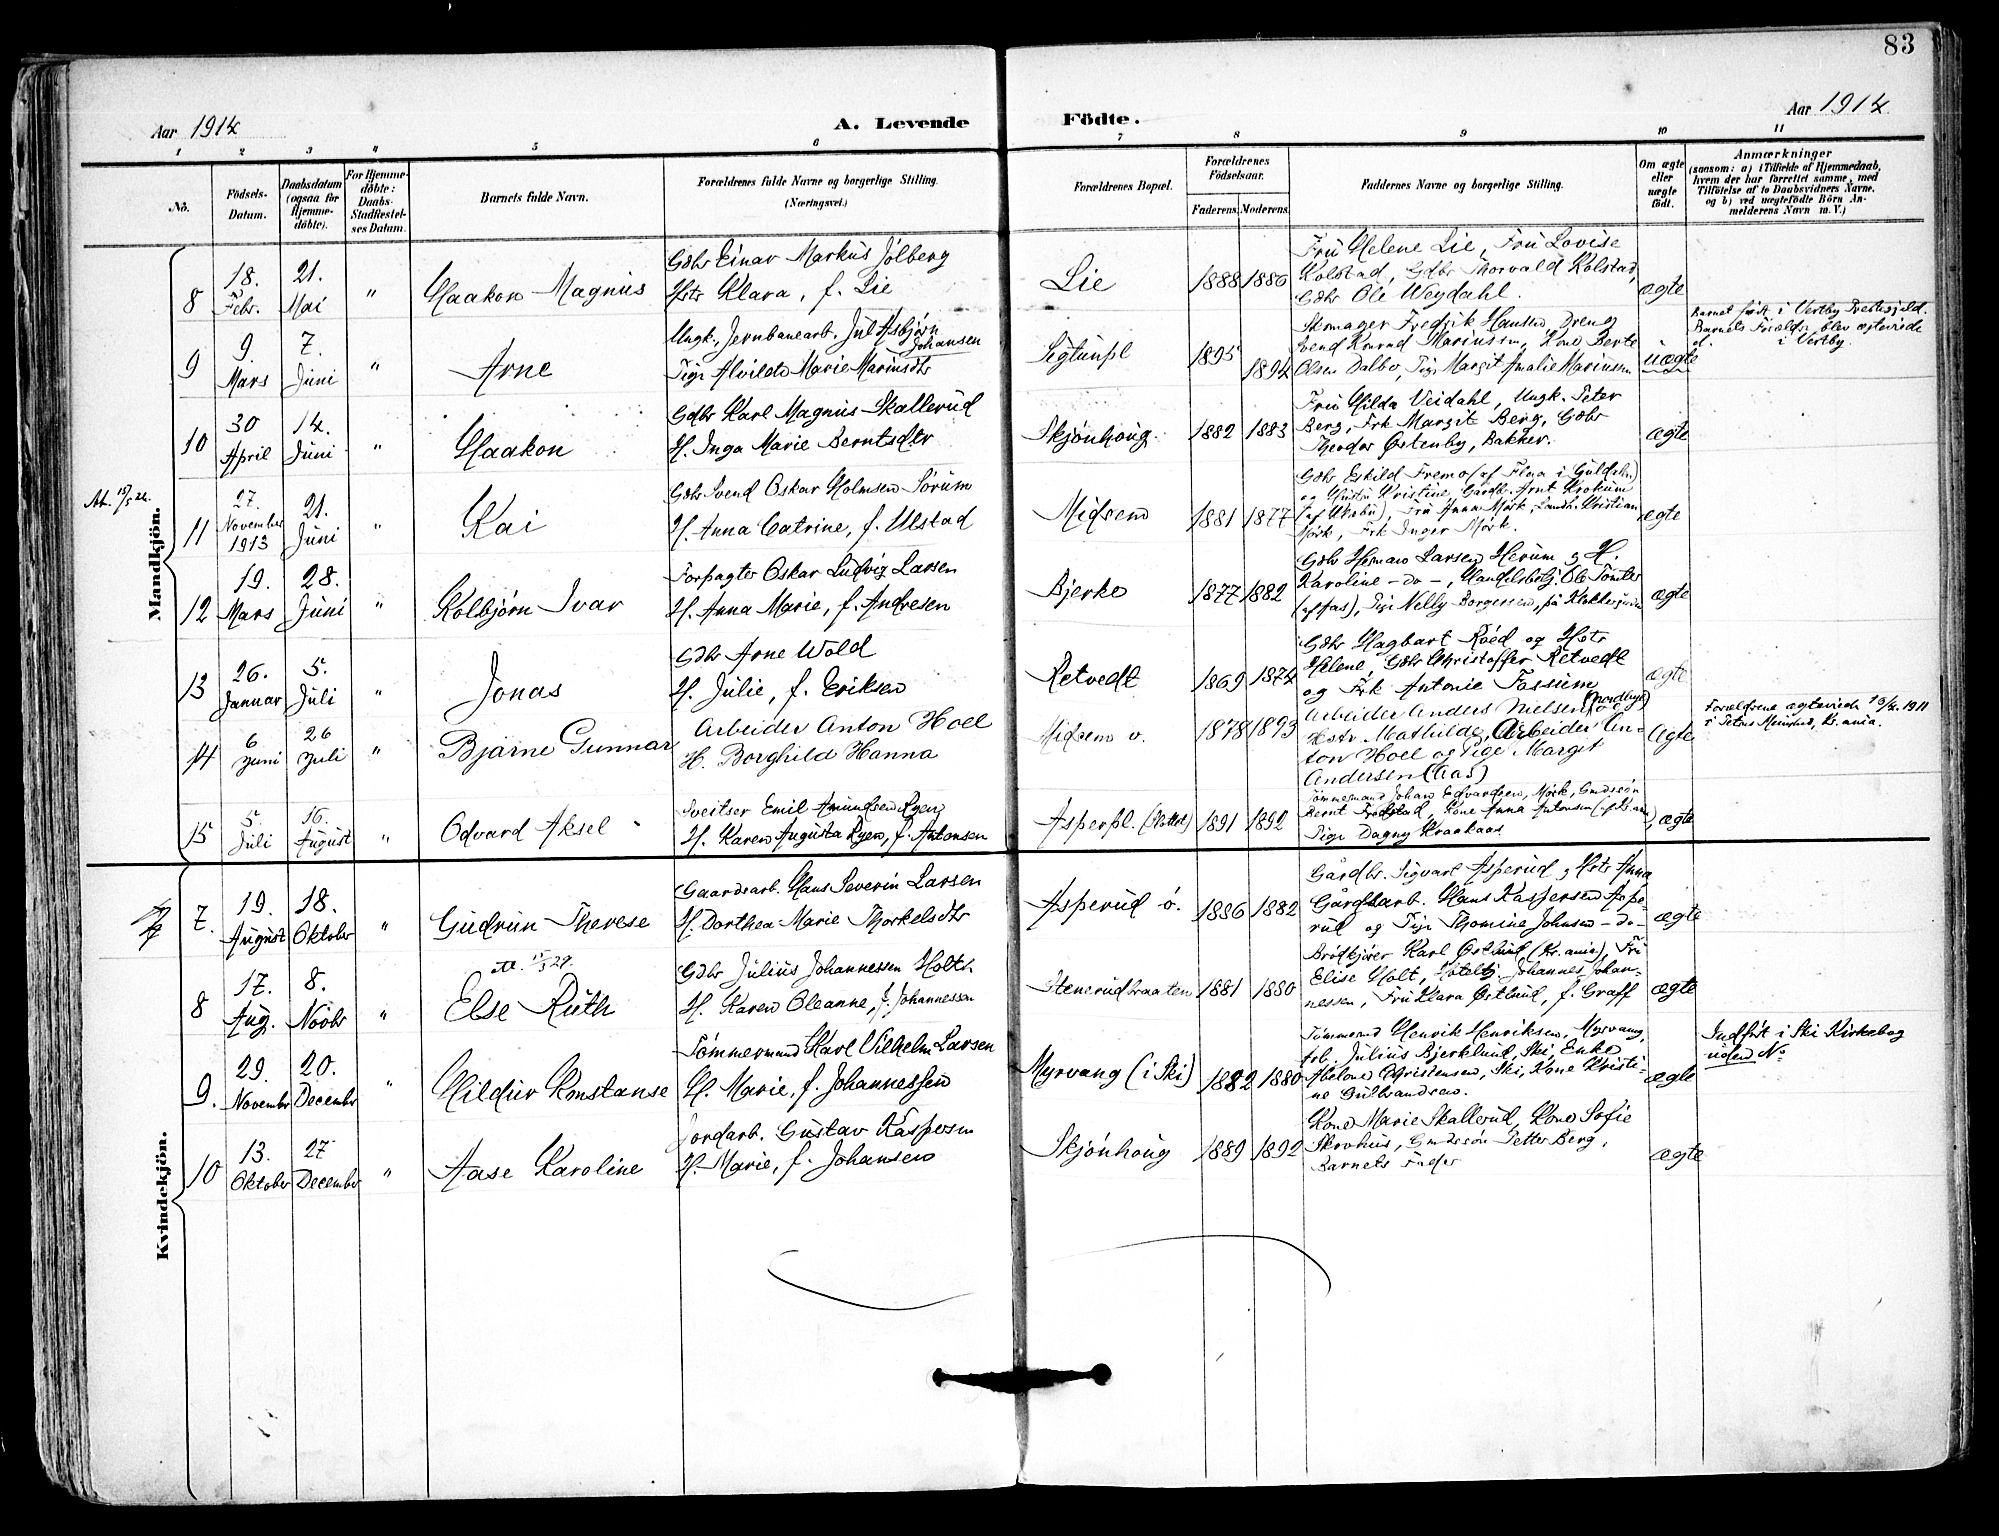 83
Aar 1914
A. Levende
Födte.
Aar 1914.
1 2 3 4 5 6 7 8 9 10 11
No.
Födsels-
Datum.
Daabsdatum
(ogsaa för
Hjemme-
döbte).
For Hjemme-
döbte:
Daabs-
Stadfæstel-
ses Datum.
Barnets fulde Navn.
Forældrenes fulde Navne og borgerlige Stilling.
(Næringsvei.)
Forældrenes Bopæl.
Forældrenes
Födselsaar.
Faderens. Moderens.
Faddernes Navne og borgerlige Stilling.
Om ægte
eller
uægte
födt.
Anmærkninger
(saasom: a) i Tilfælde af Hjemmedaab,
hvem der har forrettet samme, med
Tilföielse af to Daabsvidners Navne,
og b) ved uægtefödte Börn An-
melderens Navn m. V.)
Mandkjön.
8
18.
Febr.
21.
Mai
"
Haakon Magnus
Gdbr Einar Markus Jölberg
Hstr Klara, f. Lie
Lie
1888 1886
Fru Helene Lie, Fru Lovise
Kolstad, Gdbr Thorvald Kolstad,
Gdbr Ole Weydahl.
ægte
9
9.
Mars
7.
Juni
"
Arne
Ungk., Jernbanearb. Jul Asbjørn
Johansen
Pige Alvilde Marie Mariusdtr
Sigtunpl
1895
1894
Skomager Fredrik Hansen, Dreng
Svend Konrad Mariussen, Kone Berte
Olsen Dalbo, Pige Margit Amalie Mariussen
uægte
Barnet født i Vestby Prestegjeld.
Barnets Forældre blev ægteviede
i Vestby.
10
30
April
14.
Juni
"
Haakon
Gdbr Karl Magnus Skallerud
H. Inga Marie Berntsdtr
Skjönhoug.
1882 1883
Fru Hilda Veidahl, Ungk. Peter
Berg, Frk Margit Berg, Gdbr
Theodor Østenby, Bakker.
ægte
At. 15/5 26.
11
27.
November
1913
21.
Juni
"
Kai
Gdbr Svend Oskar Holmsen Sörum
H. Anna Catrine, f. Ulstad
Midsem
1881 1877
Gdbr Eskild Fremo (af Flaa i Guldaln)
og Hustru Kristine, Gaardb. Arnt Krokum
Fru Anna Mörk, Landh. Kristian
Mörk, Frk Inger Mörk.
ægte
12
19.
Mars
28.
Juni
"
Kolbjörn Ivar
Forpagter Oskar Ludvig Larsen
H. Anna Marie, f. Andresen
Bjerke
1877 1882
Gdbr Herman Larsen Herum og H.
Karoline -do-, Handelsbetj. Ole Tomter
(af Aas), Pige Nelly Borgersen, på
ægte
13
26.
Januar
5.
Juli
"
Jonas
Gdbr Arne Wold
H. Julie, f. Eriksen
Retvedt
1869 1874
Gdbr Hagbart Röed og Hstr
Helene, Gdbr Christoffer Retvedt
og Frk Antonie Fossum
ægte
14
6
Juni
26
Juli
"
Bjarne Gunnar
Arbeider Anton Hoel
H. Borghild Hanna
Midsem v.
1878 1893
Arbeider Anders Nielsen (Nordbyh) og
Hstr. Mathilde, Arbeider An-
ton Hoel og Pige Margit
Andersen (Aas)
Ægte
Forældrene ægteviede 13/4 1911
i Petrus Menighed, Kr.ania.
15
5.
Juli
16.
August
"
Odvard Aksel
Sveitser Emil Amundsen Ryen
H. Karen Augusta Ryen, f. Antonsen
Asperpl. (Kottet)
1891 1892
Tömmermand Johan Edvardsen, Mörk, Gmdssön
Bernt Frodstad, Kone Anna Antonsen (af Kr.ania),
Pige Dagny Kraakaas
ægte
Kvindekjön.
7.
19.
August
18.
Oktober
"
Gudrun Therese
Gaardsarb. Hans Severin Larsen
H. Dorthea Marie Thorkelsdtr
Asperud ö.
1886 1882
Gårdbr. Sigvart Asperud og Hstr Anna
Gårdbarb. Hans Kaspersen Aspe-
rud og Pige Thomine Johnsen -do-
ægte
8
17.
Aug.
8.
Novbr
"
att. 11/3 29.
Else Ruth
Gdbr Julius Johannessen Holth
H. Karen Oleanne, f. Johannessen
Stenerudbraaten
1881 1880
Brödkjører Karl Østlund, (Kr.ania), Fru
Elise Holt, Hotelbj. Johannes Johan-
nessen, Fru Klara Østlund, f. Graff
ægte
9.
29.
Novembr
20.
Decembr
"
Hildur Konstanse
Tömmermand Karl Vilhelm Larsen
H. Marie, f. Johannessen
Myrvang (i Ski)
1882 1880
Tömmermd Henrik Henriksen, Myrvang,
Arb. Julius Bjerklund, Ski, Enke
Abelone Christensen, Ski, Kone Kristi-
ne Gulbrandsen.
ægte
Indført i Ski Kirkebog
uden No
10
13.
Oktober
27
December
"
Aase Karoline
Jordarb. Gustav Kaspersen
H. Marie, f. Johansen
Skjönhoug
1889 1892
Kone Marie Skallerud, Kone Sofie
Skovhus, Gmdssön Petter Berg,
Barnets Fader
ægte